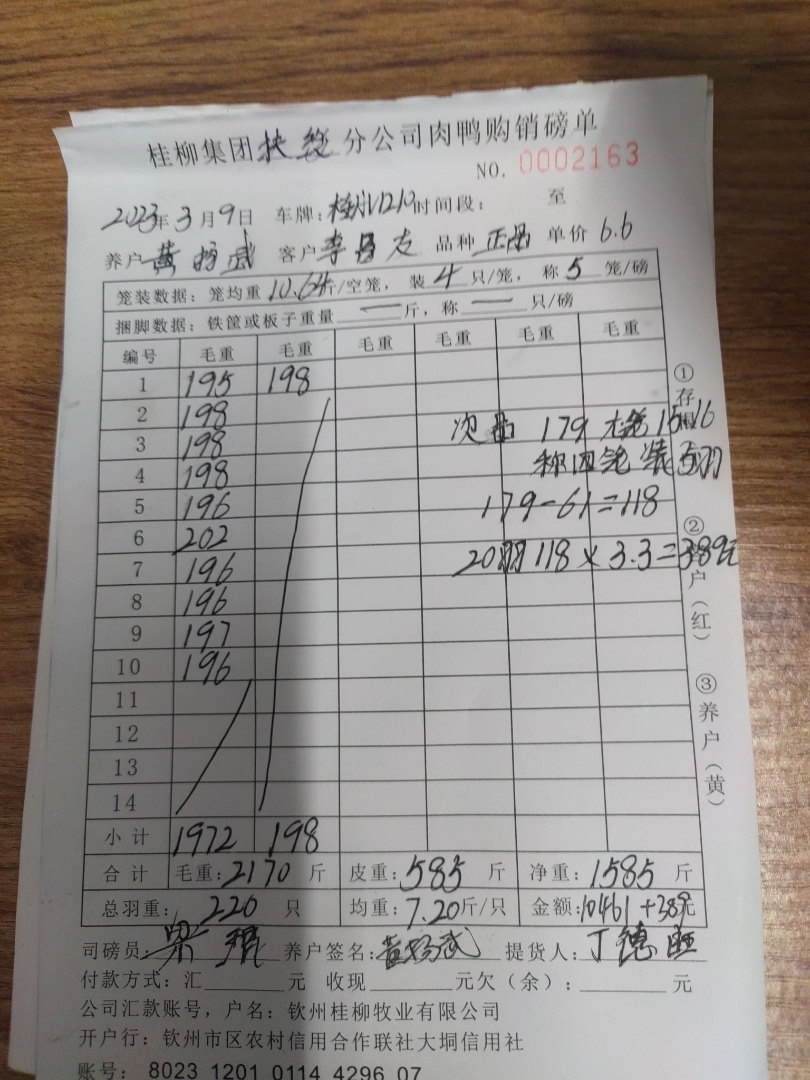 桂柳集团扶绥分公司肉鸭购销磅单
NO. 0002163
2023年3月9日 车牌: 时间段: 至
养户 黄 武 客户 李昌友 品种 正品 单价 6.6
笼装数据: 笼均重 10.64斤/空笼, 装 4 只/笼, 称 5 笼/磅
捆脚数据: 铁筐或板子重量 — 斤, 称 — 只/磅
编号 毛重 毛重 毛重 毛重 毛重 毛重
1 195 198
2 198
3 198
4 198
5 196
6 202
7 196
8 196
9 197
10 196
11
12
13
14
次品 179 15.16
称四笼 装
179-61=118
20羽 118×3.3=389元
小计 1972 198
合计 毛重: 2170 斤 皮重: 585 斤 净重: 1585 斤
总羽重: 220 只 均重: 7.20斤/只 金额: 10461+389元
司磅员: 梁 养户签名: 黄 武 提货人: 丁德旺
付款方式: 汇 元 收现 元欠(余): 元
公司汇款账号, 户名: 钦州桂柳牧业有限公司
开户行: 钦州市区农村信用合作联社大垌信用社
账号: 8023 1201 0114 4296 07
①存根
②户(红)
③养户(黄)